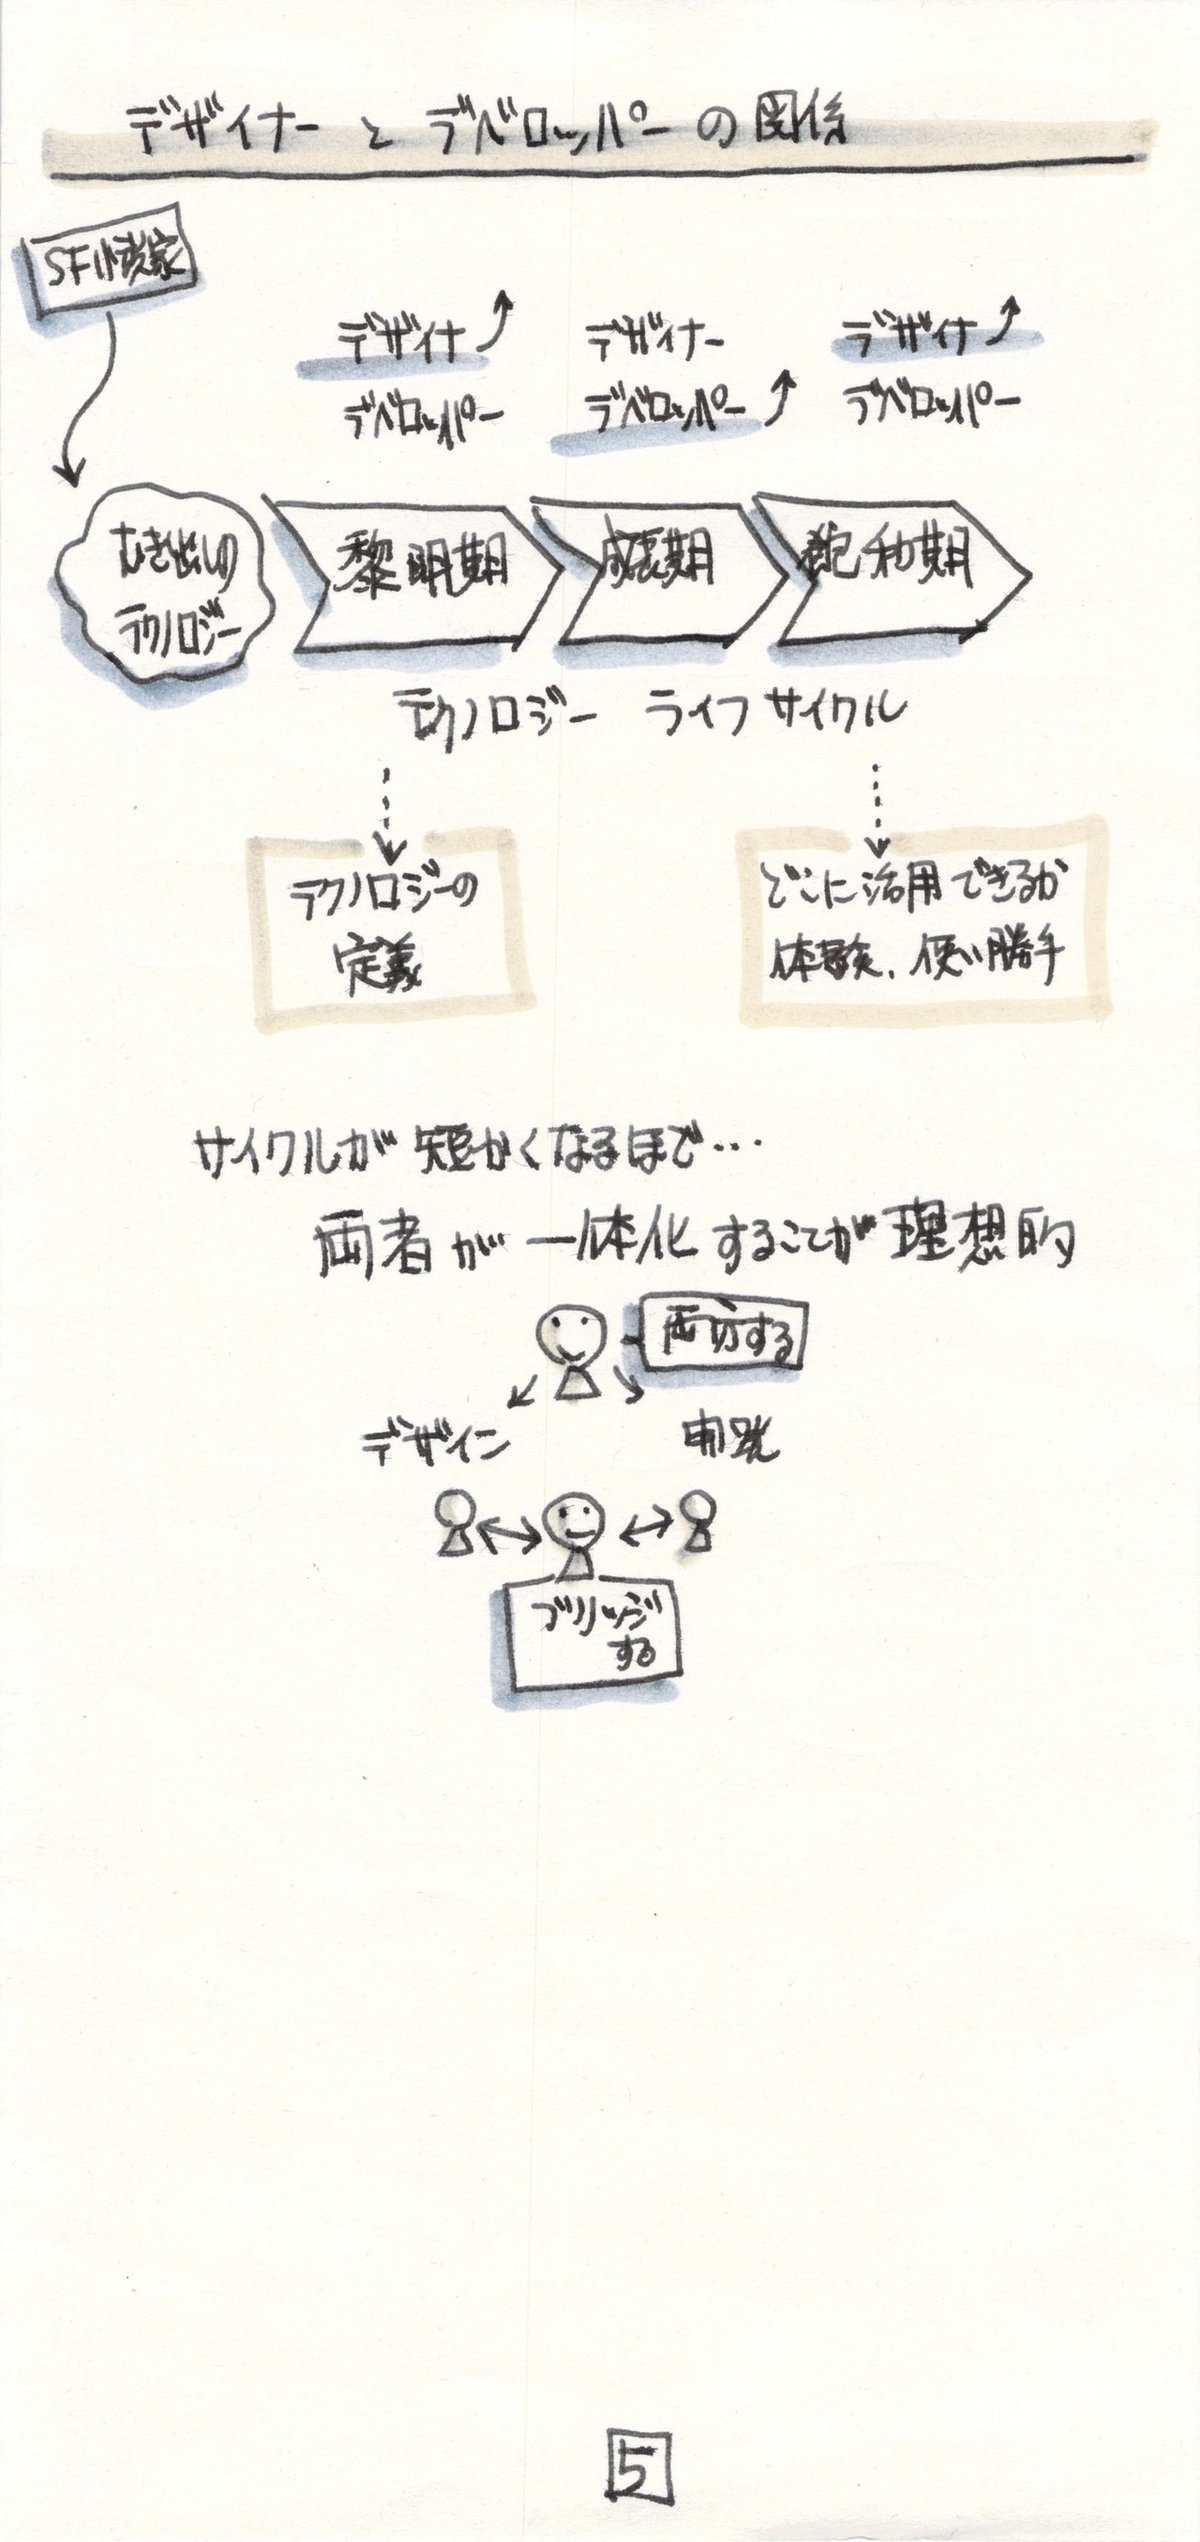 デザイナー と デベロッパー の 関係
SF小説家
デザイナ
デベロッパー
デザイナー
デベロッパー
デザイナ
デベロッパー
むき出しの
テクノロジー
黎明期
成長期
飽和期
テクノロジー ライフ サイクル
テクノロジーの
定義
どこに活用できるか
体験、使い勝手
サイクルが 短かくなるほど…
両者が 一体化 することが 理想的
両方する
デザイン
開発
ブリッジ
する
5